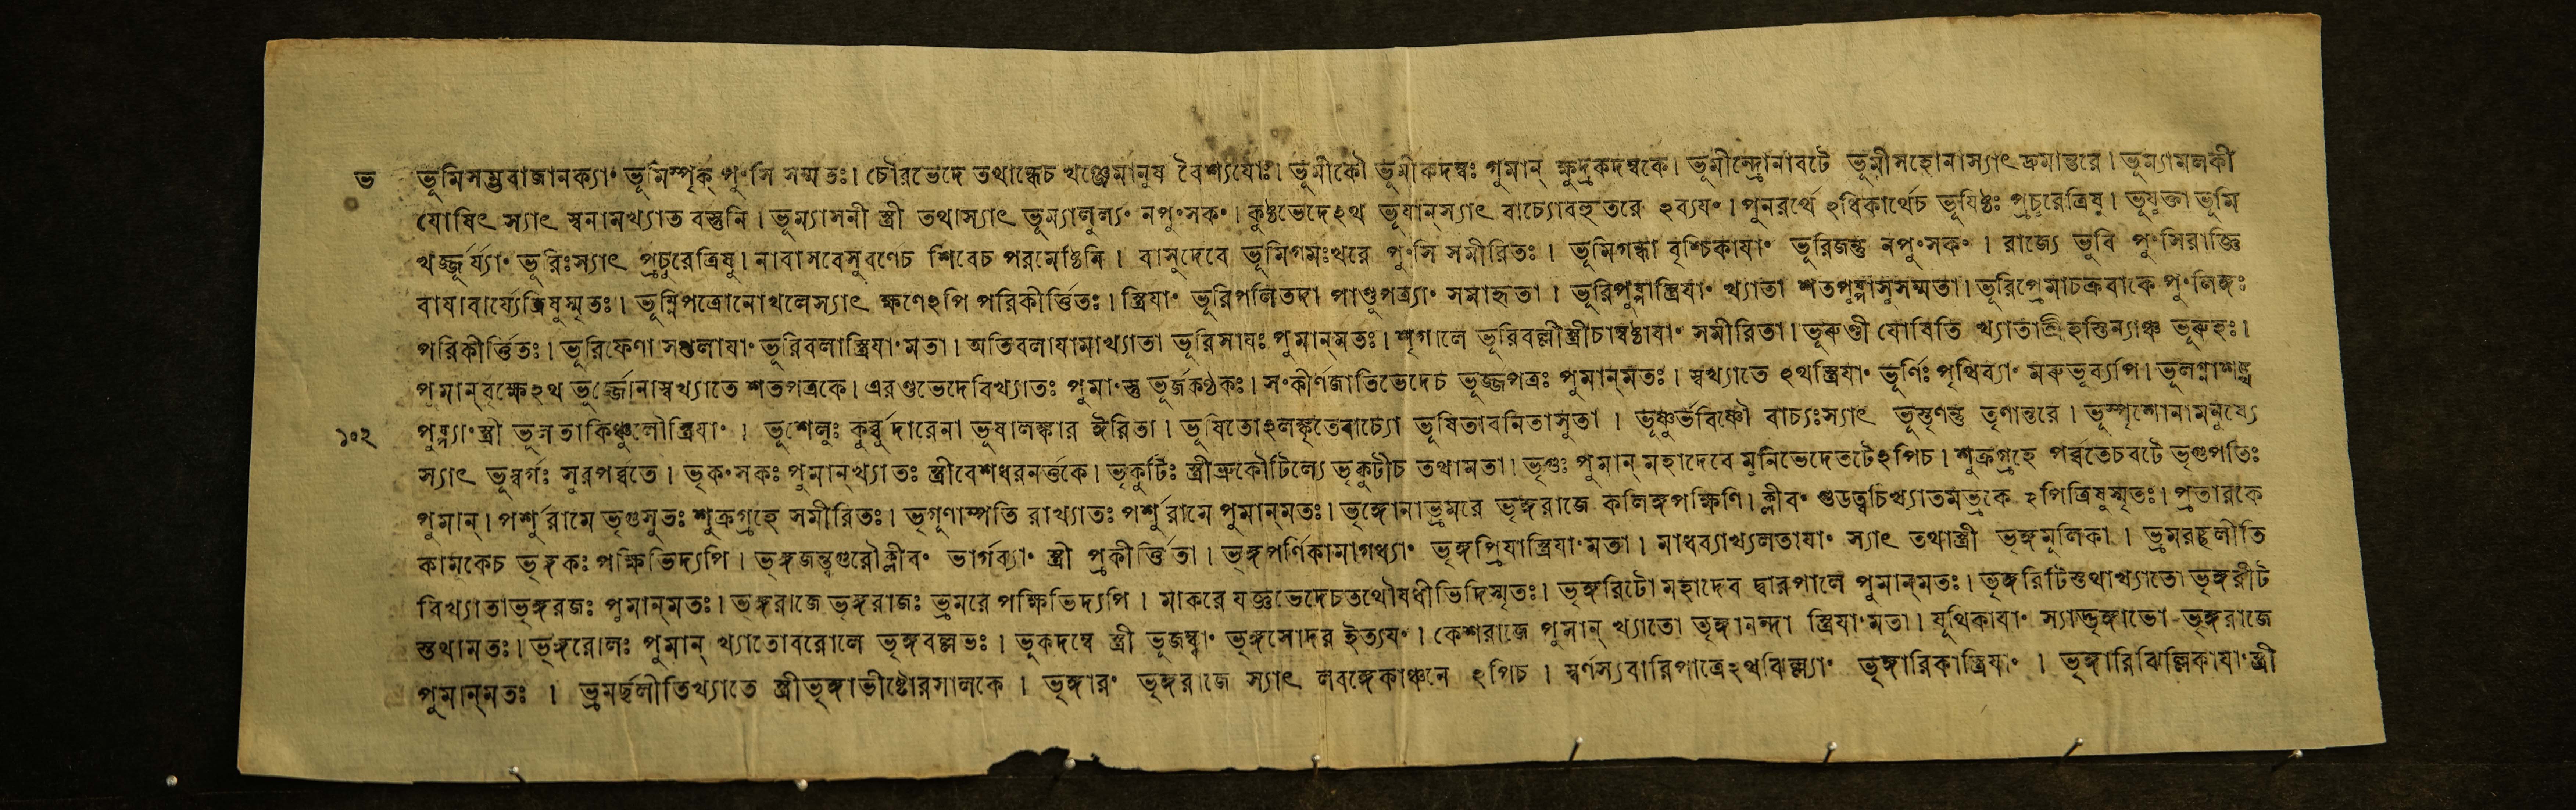 ভ ভূমিসম্ভবাজানক্যাং ভূমিস্পৃক্ পুংসি সম্মতঃ। চৌরভেদে তথান্ধেচ খঞ্জেমানুষ বৈশ্যযোঃ। ভূমীকৌ ভূমীকদম্বঃ পুমান্ ক্ষুদ্রকদম্বকে। ভূমীন্দ্রোনাবটে ভূমীসহোনাস্যাৎ দ্রুমান্তরে। ভূম্যামলকী
যোষিৎ স্যাৎ স্বনামখ্যাত বস্তুনি। ভূম্যাসনী স্ত্রী তথাস্যাৎ ভূম্যালুল্যং নপুংসকং। কুষ্ঠভেদেঽথ ভূযান্স্যাৎ বাচ্যোবহুতরে ঽব্যযং। পুনরর্থে ঽধিকার্থেচ ভূযিষ্ঠঃ প্রচুরেত্রিষু। ভূযুক্তা ভূমি
খর্জ্জূর্য্যাং ভূরিঃস্যাৎ প্রচুরেত্রিষু। নাবাসবেসুবর্ণেচ শিবেচ পরমেষ্ঠিনি। বাসুদেবে ভূমিগমঃখরে পুংসি সমীরিতঃ। ভূমিগন্ধা বৃশ্চিকাযাং ভূরিজন্তু নপুংসকং। রাজ্যে ভুবি পুংসিরাজ্ঞি
বাযাবার্য্যেত্রিষুস্মৃতঃ। ভূমিপত্রোনোখলেস্যাৎ ক্ষণেঽপি পরিকীর্ত্তিতঃ। স্ত্রিযাং ভূরিপলিতদা পাণ্ডুপত্র্যাং সমাহৃতা। ভূরিপুষ্পাস্ত্রিযাং খ্যাতা শতপুষ্পাসুসম্মতা। ভূরিপ্রেমাচক্রবাকে পুংলিঙ্গঃ
পরিকীর্ত্তিতঃ। ভূরিফেণা সপ্তলাযাং ভূরিবলাস্ত্রিযাংমতা। অতিবলাযামাখ্যাতা ভূরিমাযঃ পুমান্মতঃ। শৃগালে ভূরিবল্লীস্ত্রীচাম্বষ্ঠাযাং সমীরিতা। ভূরুণ্ডী যোষিতি খ্যাতাশ্রীহস্তিন্যাঞ্চ ভূরুহঃ।
পুমান্বৃক্ষেঽথ ভূর্জ্জোনাস্বখ্যাতে শতপত্রকে। এরণ্ডভেদেবিখ্যাতঃ পুমাংস্তু ভূর্জকণ্টকঃ। সংকীর্ণজাতিভেদেচ ভূর্জ্জপত্রঃ পুমান্মতঃ। স্বখ্যাতে ঽথস্ত্রিযাং ভূর্ণিঃ পৃথিব্যাং মরুভূব্যপি। ভূলগ্নাশঙ্খ
১০২ পুষ্প্যাংস্ত্রী ভূলতাকিঞ্চুলৌস্ত্রিযাং। ভূশেলুঃ কুর্ব্বুদারেনা ভূষালঙ্কার ঈরিতা। ভূষিতোঽলঙ্কৃতেবাচ্যো ভূষিতাবনিতাসুতা। ভূষ্ণুর্ভবিষ্ণৌ বাচ্যঃস্যাৎ ভূস্তৃণন্তু তৃণান্তরে। ভূস্পৃশোনামনুষ্যে
স্যাৎ ভূস্বর্গঃ সুরপর্ব্বতে। ভৃকংসকঃ পুমান্খ্যাতঃ স্ত্রীবেশধরনর্ত্তকে। ভৃকুটিঃ স্ত্রীভ্রুকৌটিল্যে ভৃকুটীচ তথামতা। ভৃগুঃ পুমান্ মহাদেবে মুনিভেদেতটেঽপিচ। শুক্রগ্রহে পর্ব্বতেচবটে ভৃগুপতিঃ
পুমান্। পর্শুরামে ভৃগুসুতঃ শুক্রগ্রহে সমীরিতঃ। ভৃগূণাম্পতি রাখ্যাতঃ পর্শুরামে পুমান্মতঃ। ভৃঙ্গোনাভ্রমরে ভৃঙ্গরাজে কলিঙ্গপক্ষিণি। ক্লীবং গুডত্বচিখ্যাতমভ্রকে ঽপিত্রিষুস্মৃতঃ। প্রতারকে
কামুকেচ ভৃঙ্গকঃ পক্ষিভিদ্যপি। ভৃঙ্গজন্ত্বগুরৌক্লীবং ভার্গব্যাং স্ত্রী প্রকীর্ত্তিতা। ভৃঙ্গপর্ণিকামাগধ্যাং ভৃঙ্গপ্রিযাস্ত্রিযাংমতা। মাধব্যাখ্যলতাযাং স্যাৎ তথাস্ত্রী ভৃঙ্গমূলিকা। ভ্রমরছলীতি
বিখ্যাতাভৃঙ্গরজঃ পুমান্মতঃ। ভৃঙ্গরাজে ভৃঙ্গরাজঃ ভ্রমরে পক্ষিভিদ্যপি। মাকরে যজ্ঞভেদেচতথৌষধীভিদিস্মৃতঃ। ভৃঙ্গরিটো মহাদেব দ্বারপালে পুমান্মতঃ। ভৃঙ্গরিটিস্তথাখ্যাতো ভৃঙ্গরীট
স্তথামতঃ। ভৃঙ্গরোলঃ পুমান্ খ্যাতোবরোলে ভৃঙ্গবল্লভঃ। ভূকদম্বে স্ত্রী ভূজম্ব্বাং ভৃঙ্গসোদর ইত্যযং। কেশরাজে পুমান্ খ্যাতো ভৃঙ্গানন্দা স্ত্রিযাংমতা। যূথিকাযাং স্যাদ্ভৃঙ্গাভো ভৃঙ্গরাজে
পুমান্মতঃ। ভ্রমর্ছলীতিখ্যাতে স্ত্রীভৃঙ্গাভীষ্টোরসালকে। ভৃঙ্গারং ভৃঙ্গরাজে স্যাৎ লবঙ্গেকাঞ্চনে ঽপিচ। স্বর্ণস্যবারিপাত্রেঽথঝিল্ল্যাং ভৃঙ্গারিকাস্ত্রিযাং। ভৃঙ্গারিঝিল্লিকাযাংস্ত্রী